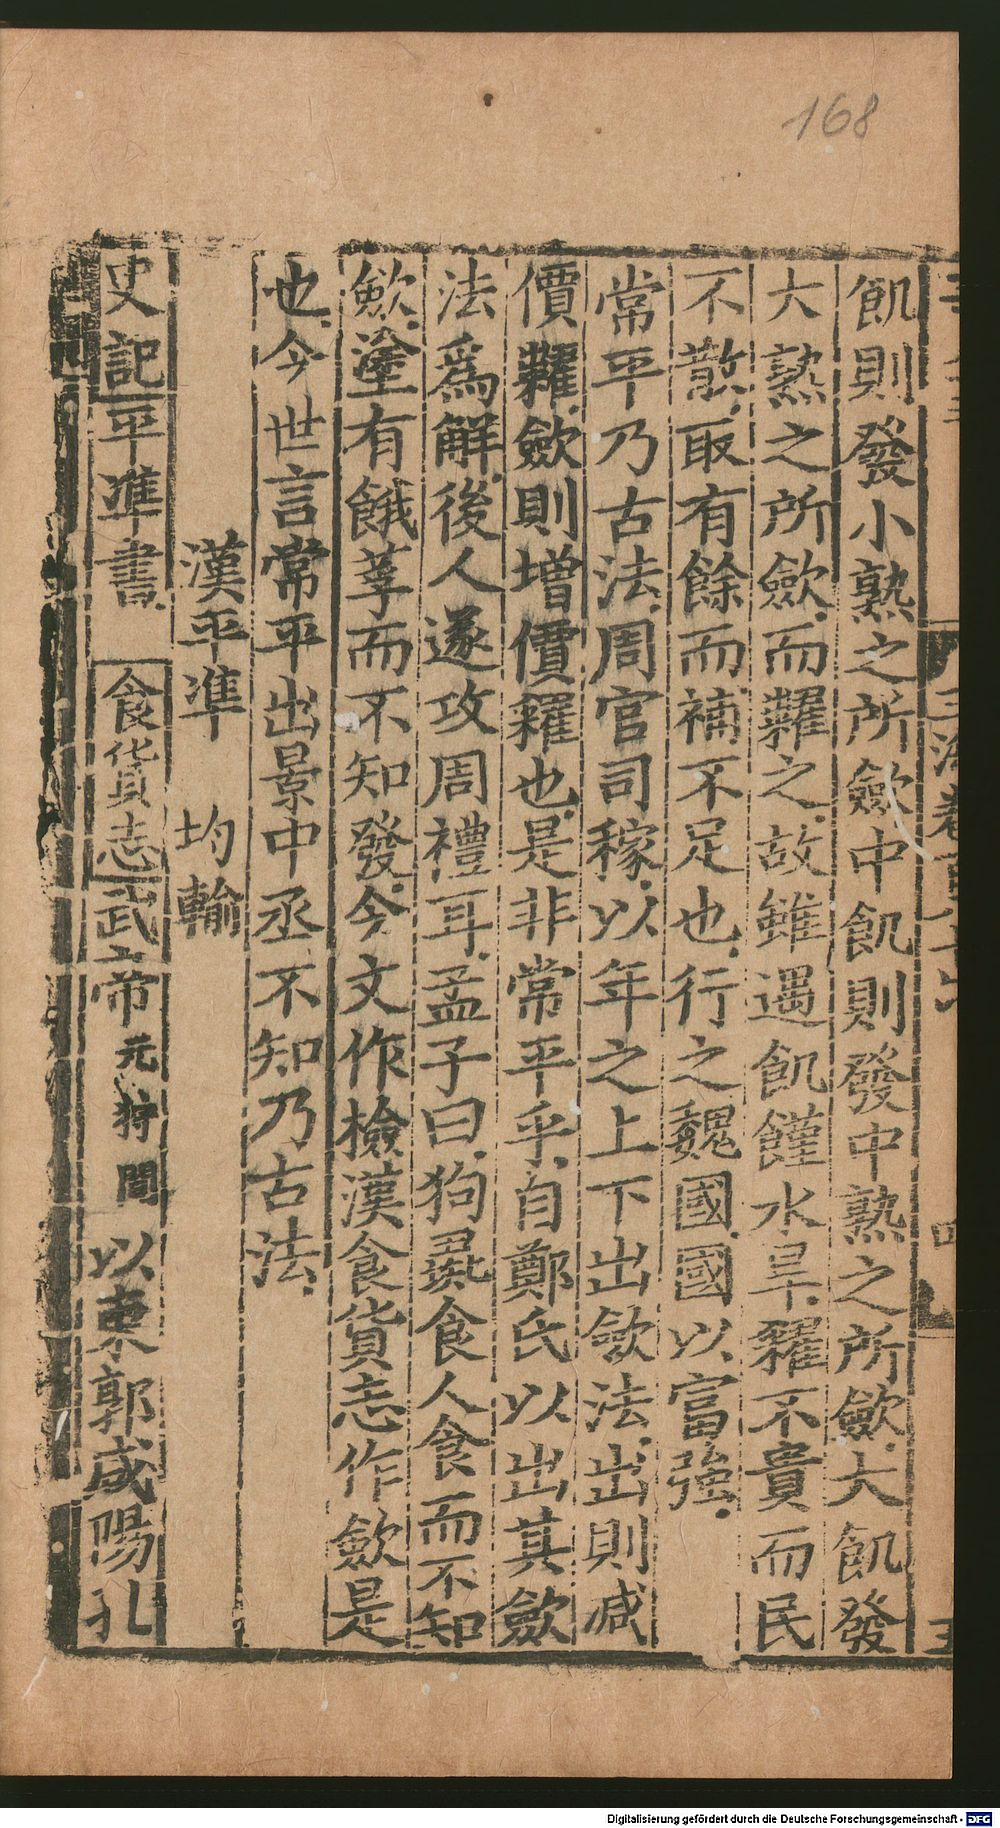 168
飢則發小熟之所歛中飢則發中熟之所歛大飢發
大熟之所歛而糶之故雖遇飢饉水旱糴不貴而民
不散取有餘而補不足也行之魏國國以富強
常平乃古法周官司稼以年之上下出歛法出則减
價糶歛則增價糴也是非常平乎自鄭氏以出其歛
法爲解後人遂攻周禮耳孟子曰狗彘食人食而不知
歛塗有餓莩而不知發今文作檢漢食貨志作歛是
也今世言常平出景中丞不知乃古法
漢平準 均輸
史記平準書食貨志武帝元狩間以東郭咸陽孔
Digitalisierung gefördert durch die Deutsche Forschungsgemeinschaft - DFG